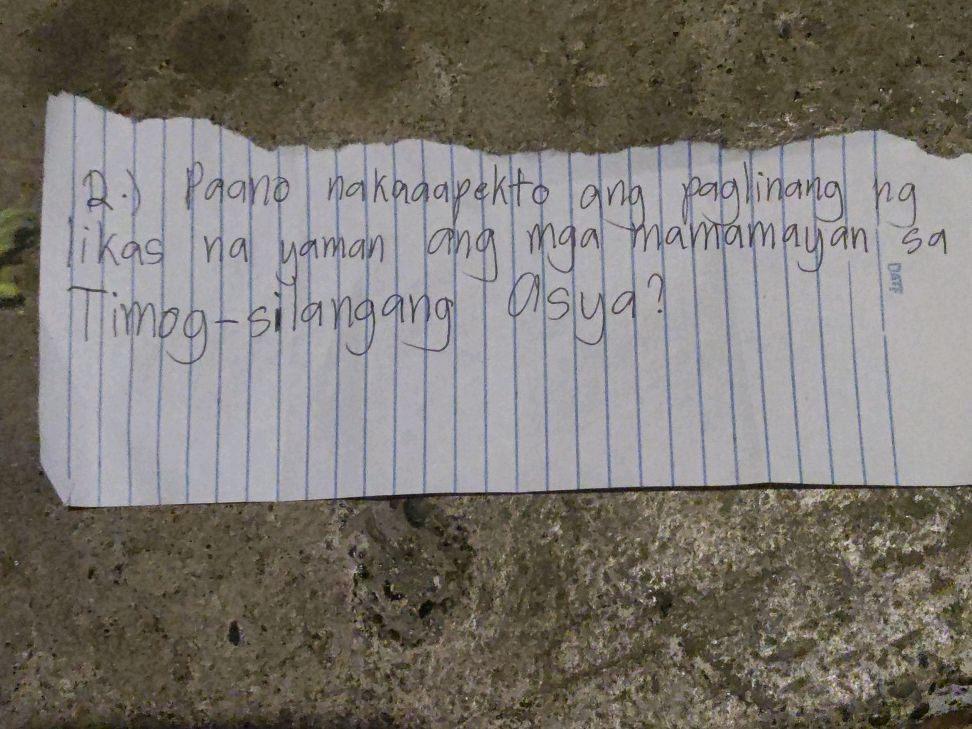 2.) Paano nakaaapekto ang paglinang ng
likas na yaman ang mga mamamayan sa
Timog-silangang Asya?
DATE